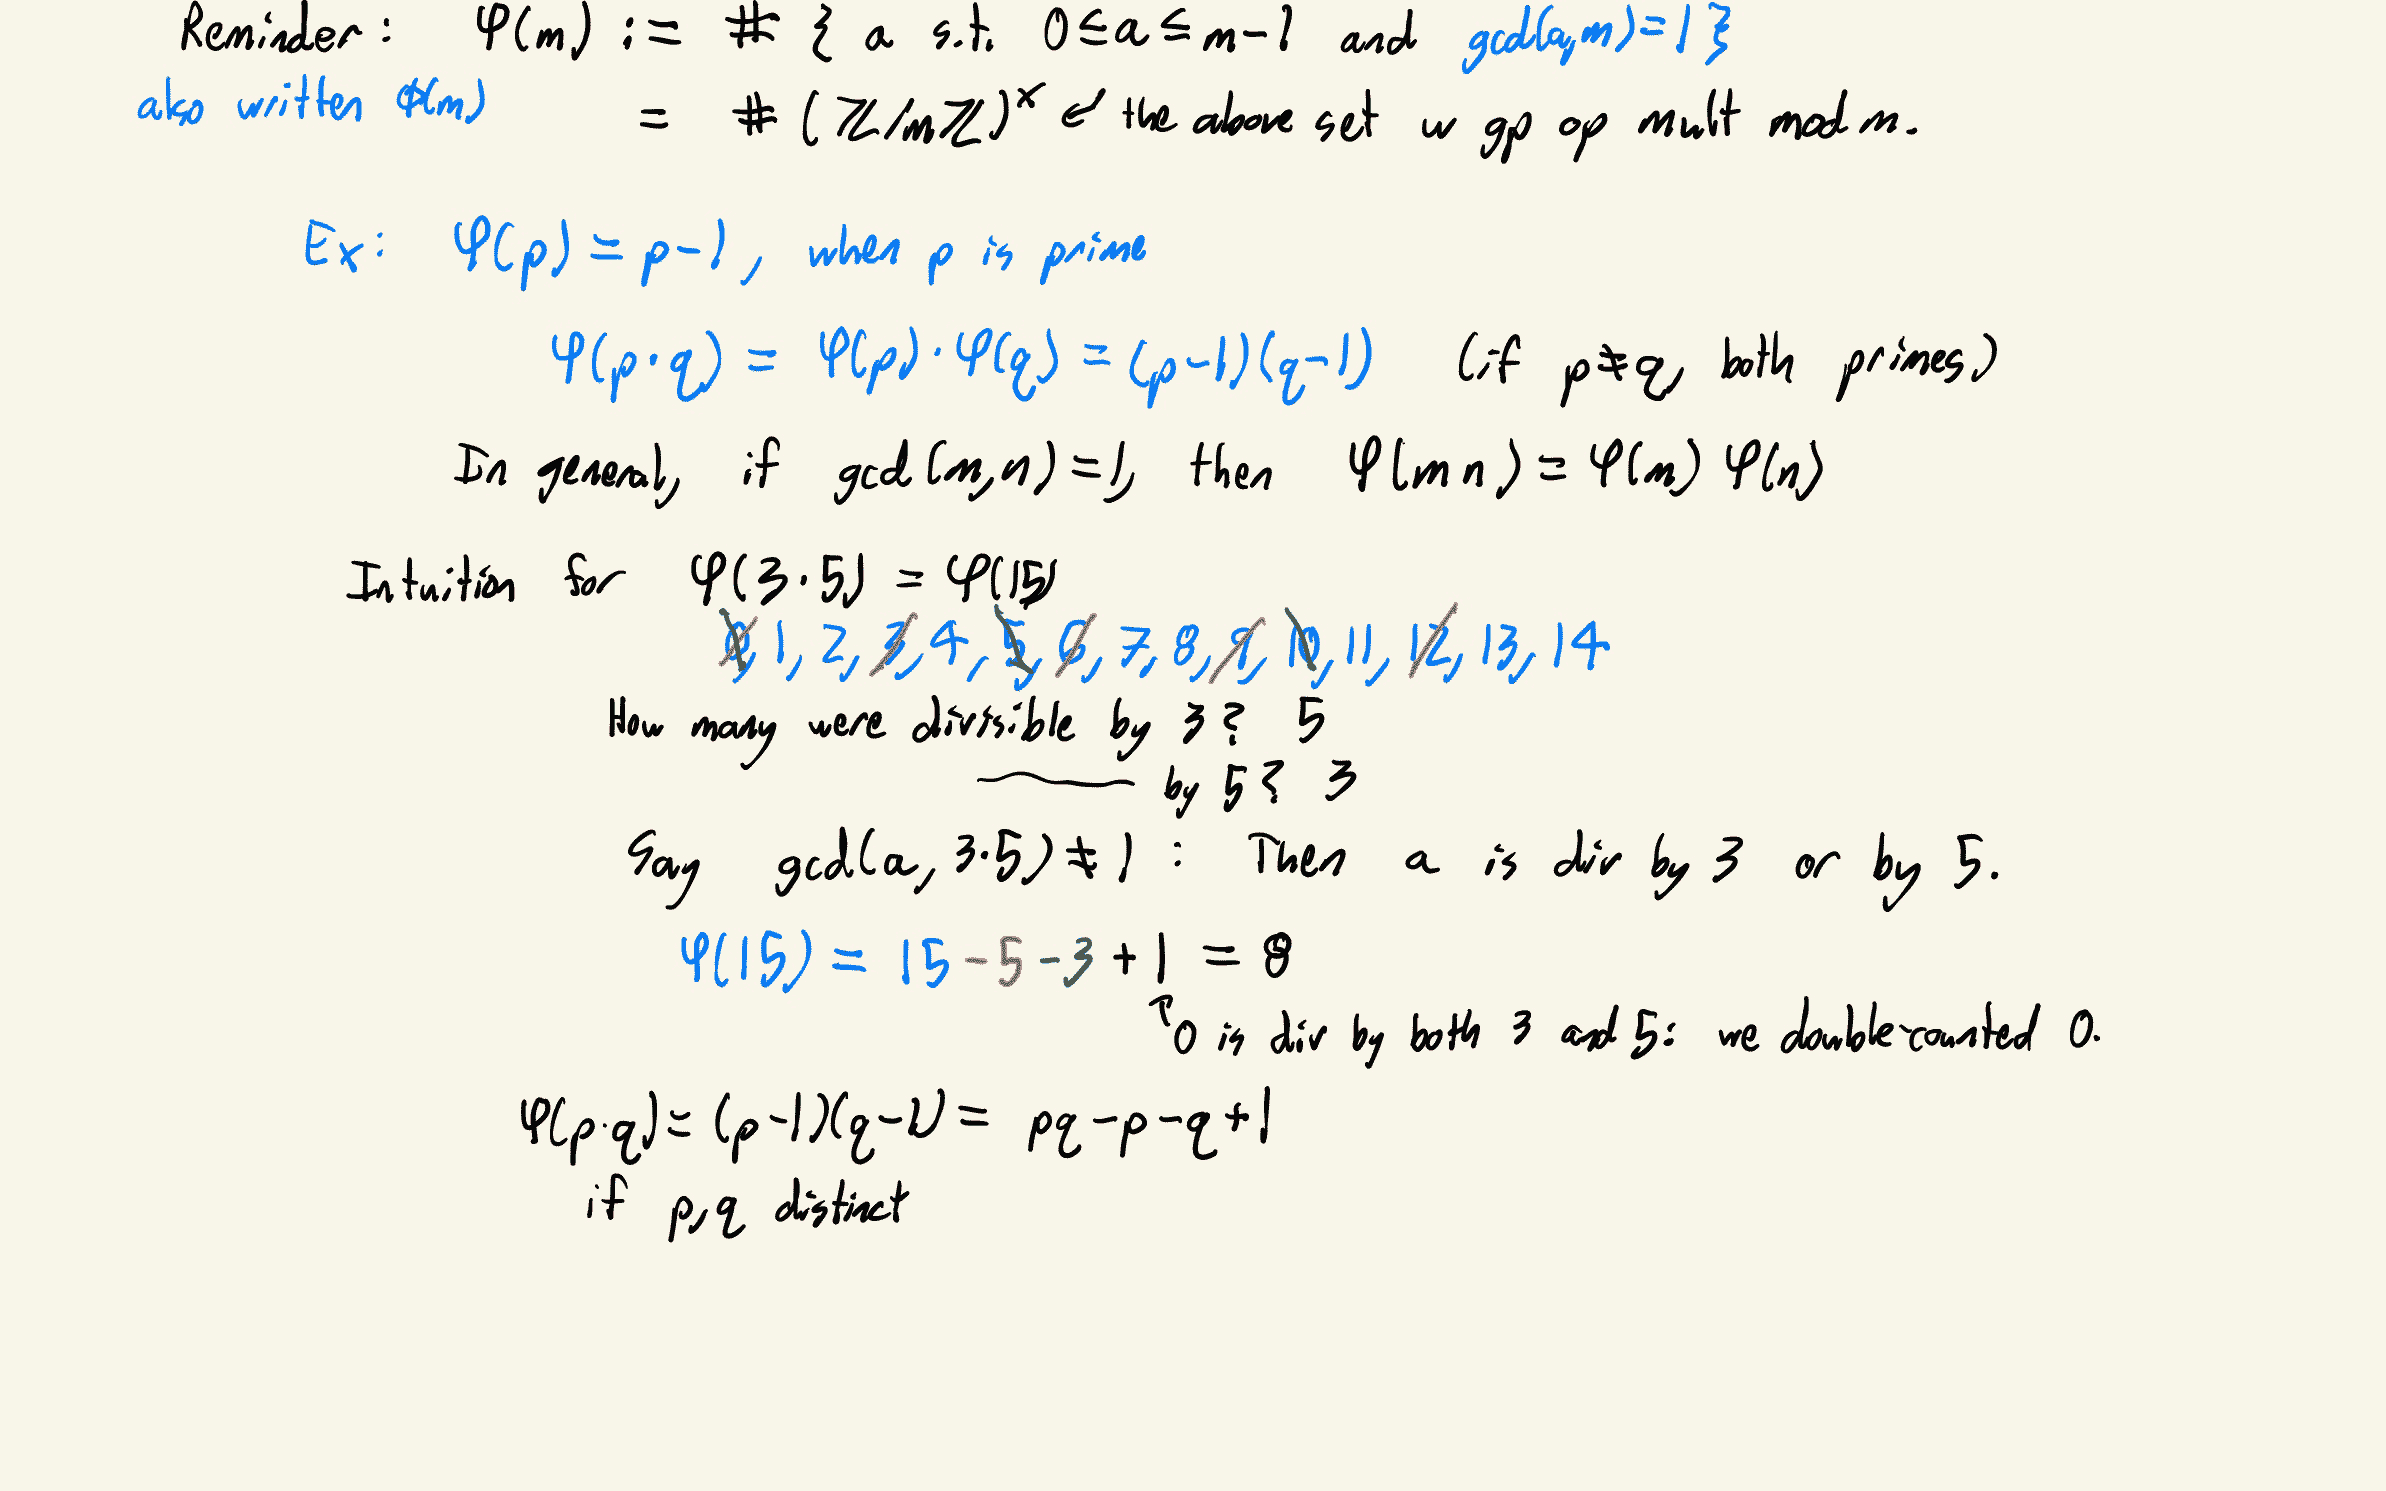 Reminder: φ(m) := # { a s.t. 0 ≤ a ≤ m-1 and gcd(a,m)=1 }
also written ϕ(m) = # (ℤ/mℤ)^× ↙ the above set w gp op mult mod m.
Ex: φ(p) = p-1, when p is prime
φ(p·q) = φ(p)·φ(q) = (p-1)(q-1) (if p≠q, both primes)
In general, if gcd(m,n)=1, then φ(mn) = φ(m) φ(n)
Intuition for φ(3·5) = φ(15)
0, 1, 2, 3, 4, 5, 6, 7, 8, 9, 10, 11, 12, 13, 14
How many were divisible by 3? 5
by 5? 3
Say gcd(a, 3·5) ≠ 1 : Then a is div by 3 or by 5.
φ(15) = 15 - 5 - 3 + 1 = 8
↑ 0 is div by both 3 and 5: we double-counted 0.
φ(p·q) = (p-1)(q-1) = pq - p - q + 1
if p,q distinct